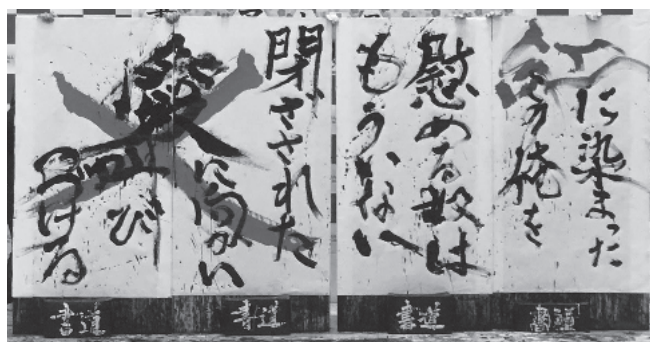 紅に染まった
この俺を
慰める奴は
もういない
閉ざされた
愛に向かい
叫び
つづける
書道
書道
書道
書道